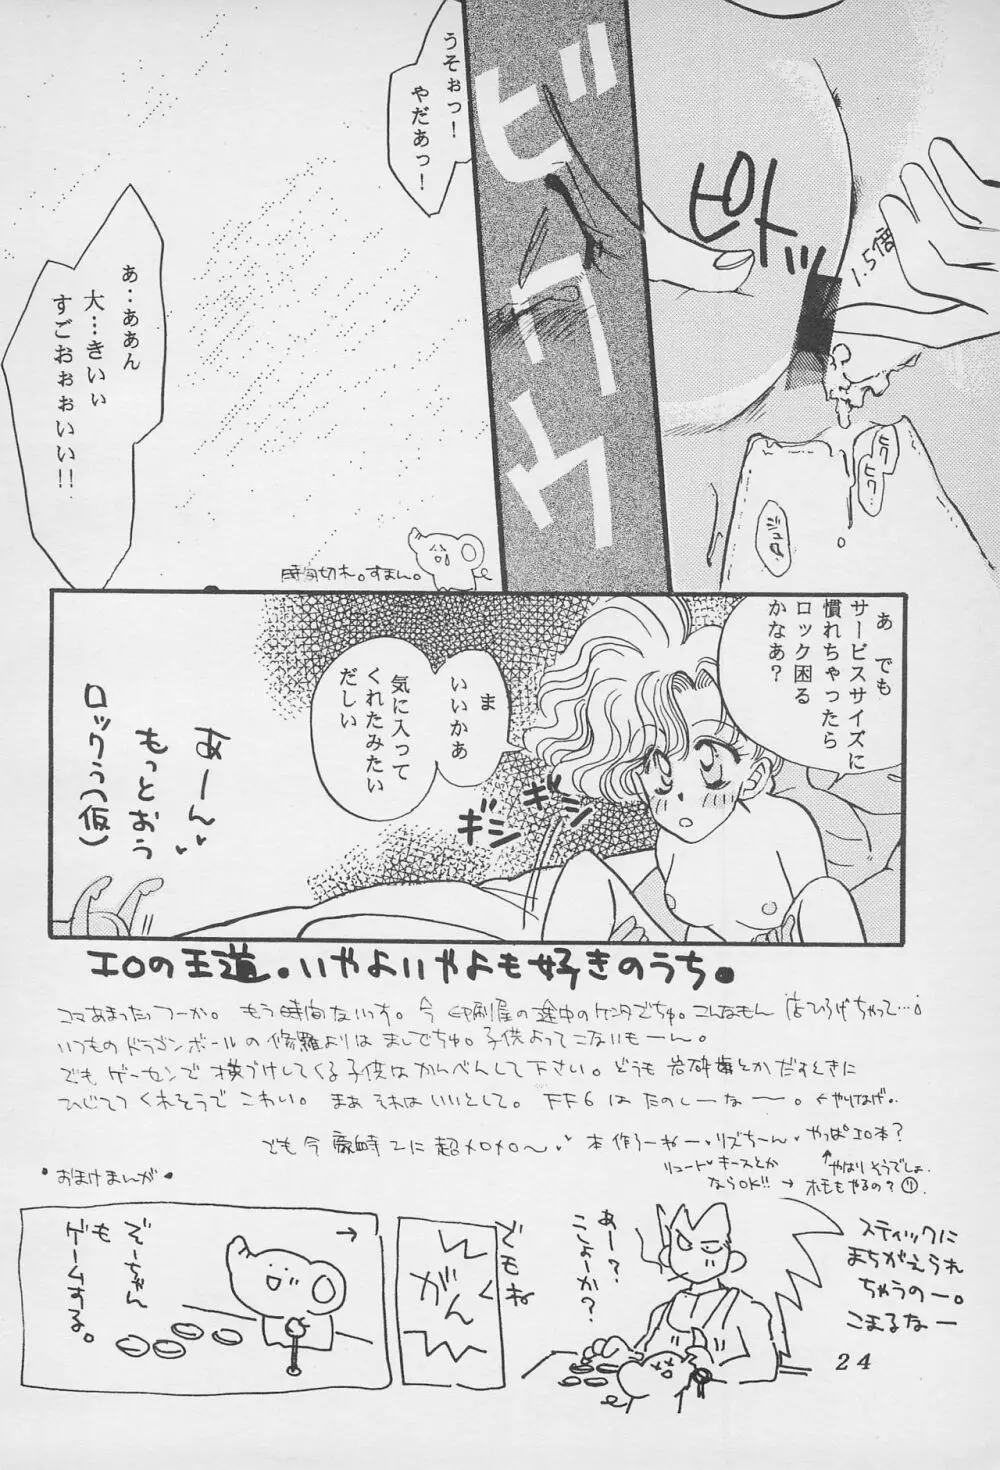 うそぉっ！
やだあっ！
ビクウ
ピト
ドッ
1.5倍
ヒク
ヒク…
ジュワ
あ‥ああん
大…きいぃ
すごおぉぉいい!!
時間切れ。すまん。
あ でも
サービスサイズに
慣れちゃったら
ロック困る
かなあ？
ま
いいかあ
気に入って
くれたみたい
だしい
ギシ
ギシ
あーん
もっとおう
ロックぅ(仮)
エロの王道。いやよいやよも好きのうち。
コマあまったっつーか。もう時間ないっす。今印刷屋の途中のケンタでちゅ。こんなもん
いつものドラゴンボールの修羅よりはましでちゅ。子供よってこないもーん。
でもゲーセンで横づけしてくる子供はかんべんして下さい。どうも岩砕歯とかだすときに
ひじてつくれそうでこわい。まあそれはいいとして。FF6はたのしーなー。←やりなげ。
でも今 豪血寺2に超メロメロ〜
本作ろーねー・リズちーん
やっぱエロ本？
↑やはりそうでしょ。
リュート キースとか
ならOK!! → ホモもやるの？
・おまけまんが・
→
ぞーちゃん
も
ゲームする。
がん
でもね
あー？
こしょーか？
スティックに
まちがえられ
ちゃうのー。
こまるなー
24